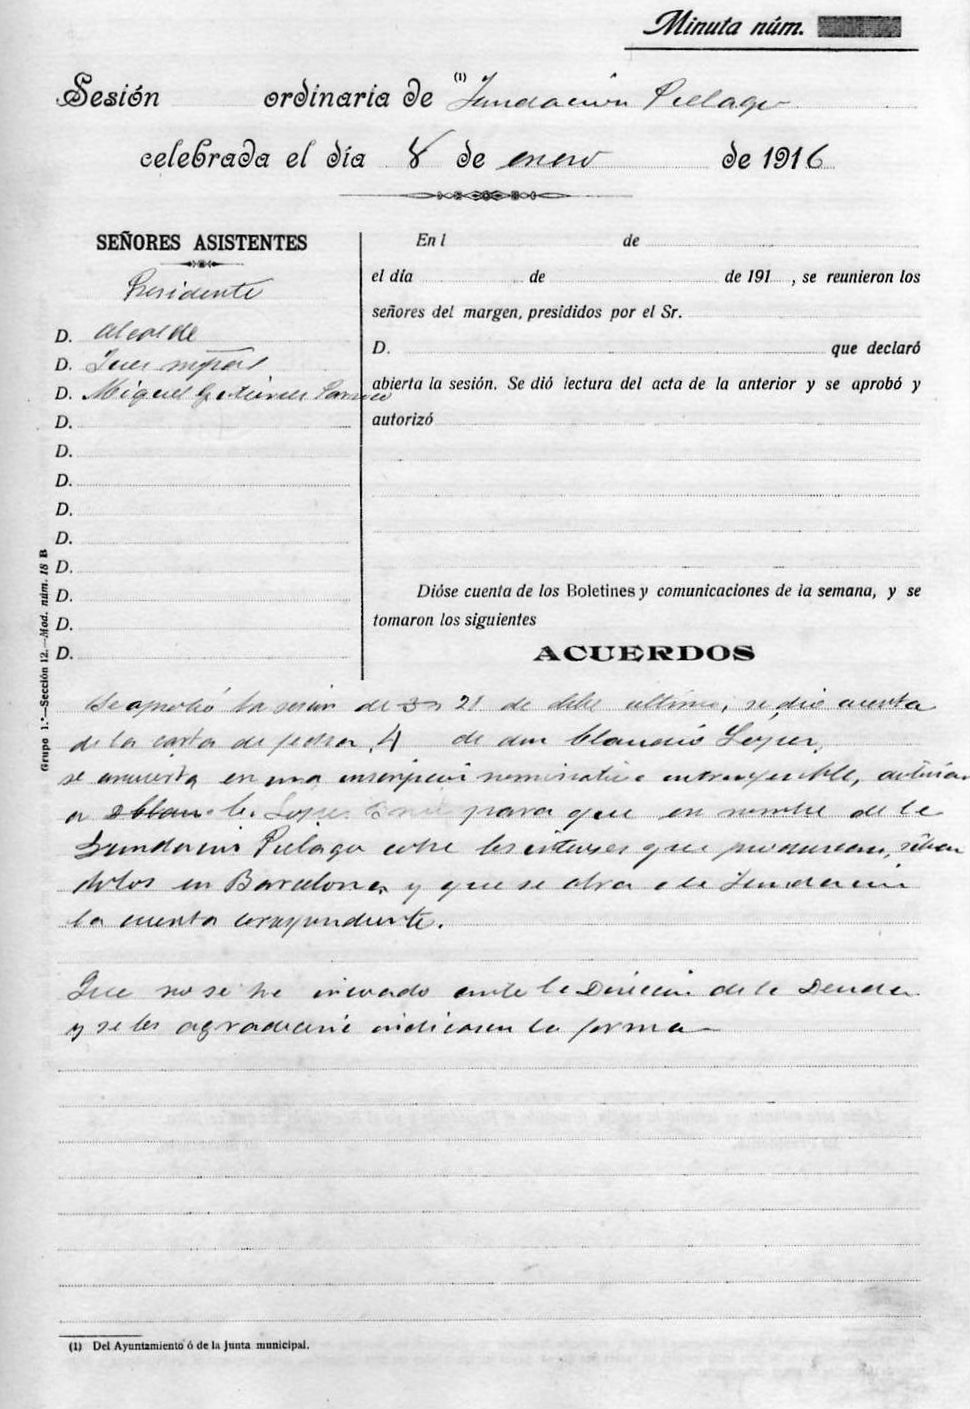 Minuta núm.
Sesión ordinaria de (1) Fundación Pielago
celebrada el día 8 de enero de 1916
SEÑORES ASISTENTES
Presidente
D. Alcalde
D. Juez
D. Miguel Gutierrez
D.
D.
D.
D.
D.
D.
D.
D.
D.
En l de
el día de de 191 , se reunieron los
señores del margen, presididos por el Sr.
D. que declaró
abierta la sesión. Se dió lectura del acta de la anterior y se aprobó y
autorizó
Dióse cuenta de los Boletines y comunicaciones de la semana, y se
tomaron los siguientes
ACUERDOS
Se aprobó la sesión de 21 de dbe último, se dió cuenta
de la carta de fecha 4 de don Claudio Lopez,
se en una inscripción nominativa intransferible,
a Lopez para que en nombre de la
Fundación Pielago cobre los intereses que produzcan,
dolos en Barcelona y que se abra a la Fundación
la cuenta correspondiente.
Que no se ha ante la Dirección de la Deuda
y se les agradecerá indicasen la forma
Grupo 1.º—Sección 12.—Mod. núm. 18 B
(1) Del Ayuntamiento ó de la Junta municipal.